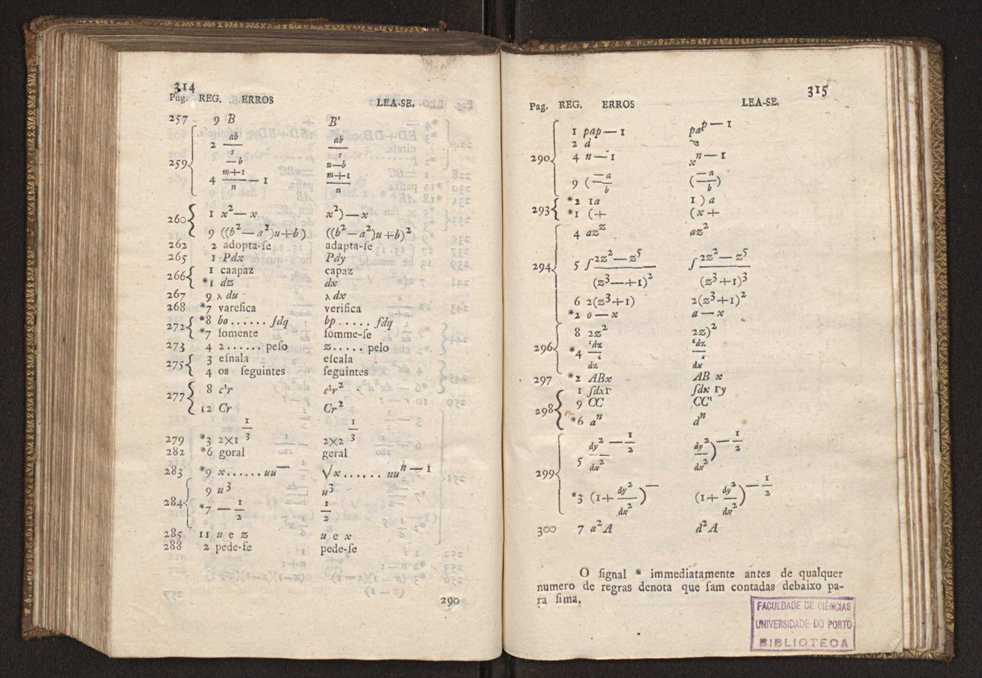 314
Pag. REG. ERROS LEA-SE.
257 9 B B'
259 2 ab/1 ab/1
—b n—b
4 m+1/n —1 m+1/n
260 1 x²—x x²)—x
9 ((b²—a²)u+b) ((b²—a²)u+b)²
262 2 adopta-ſe adapta-ſe
265 1 Pdx Pdy
266 1 caapaz capaz
*1 dz dx
267 9 λ du λ dx
268 *7 vareſica verifica
272 *8 bo...... ſdq bp..... ſdq
*7 ſomente ſomme-ſe
273 4 2...... peſo z..... pelo
275 3 eſnala eſcala
4 os ſeguintes ſeguintes
277 8 c'r c'r²
12 Cr Cr²
279 *3 2×1 1/3 2×2 1/3
282 *6 goral geral
283 *9 x...... uu— √x...... uuⁿ—1
284 9 u³ u³
*7 —1/2 1/2
285 11 u e z u e x
288 2 pede-ſe pede-ſe
290
315
Pag. REG. ERROS LEA-SE.
290 1 pap—1 pa^p—1
2 d
4 n—1 xⁿ—1
9 (—a/b (—a/b)
293 *2 1a 1)a
*1 (+ (x+
294 4 az^z az²
5 ſ 2z²—z⁵/(z³—+1)² ſ 2z²—z⁵/(z³+1)³
6 2(z³+1) 2(z³+1)²
*2 o—x a—x
296 8 2z² 2z)²
*4 'dz/dz 'dz/dx
297 *2 ABx AB x
298 1 ſdxr ſdx ry
9 CC CC'
*6 aⁿ dⁿ
299 5 dy²/dx² —1/2 (dy²/dx²)—1/2
*3 (1+dy²/dx²)— (1+dy²/dx²)—1/2
300 7 a²A d²A
O ſignal * immediatamente antes de qualquer
numero de regras denota que ſam contadas debaixo pa-
ra ſima.
FACULDADE DE CIÊNCIAS
UNIVERSIDADE DO PORTO
BIBLIOTECA